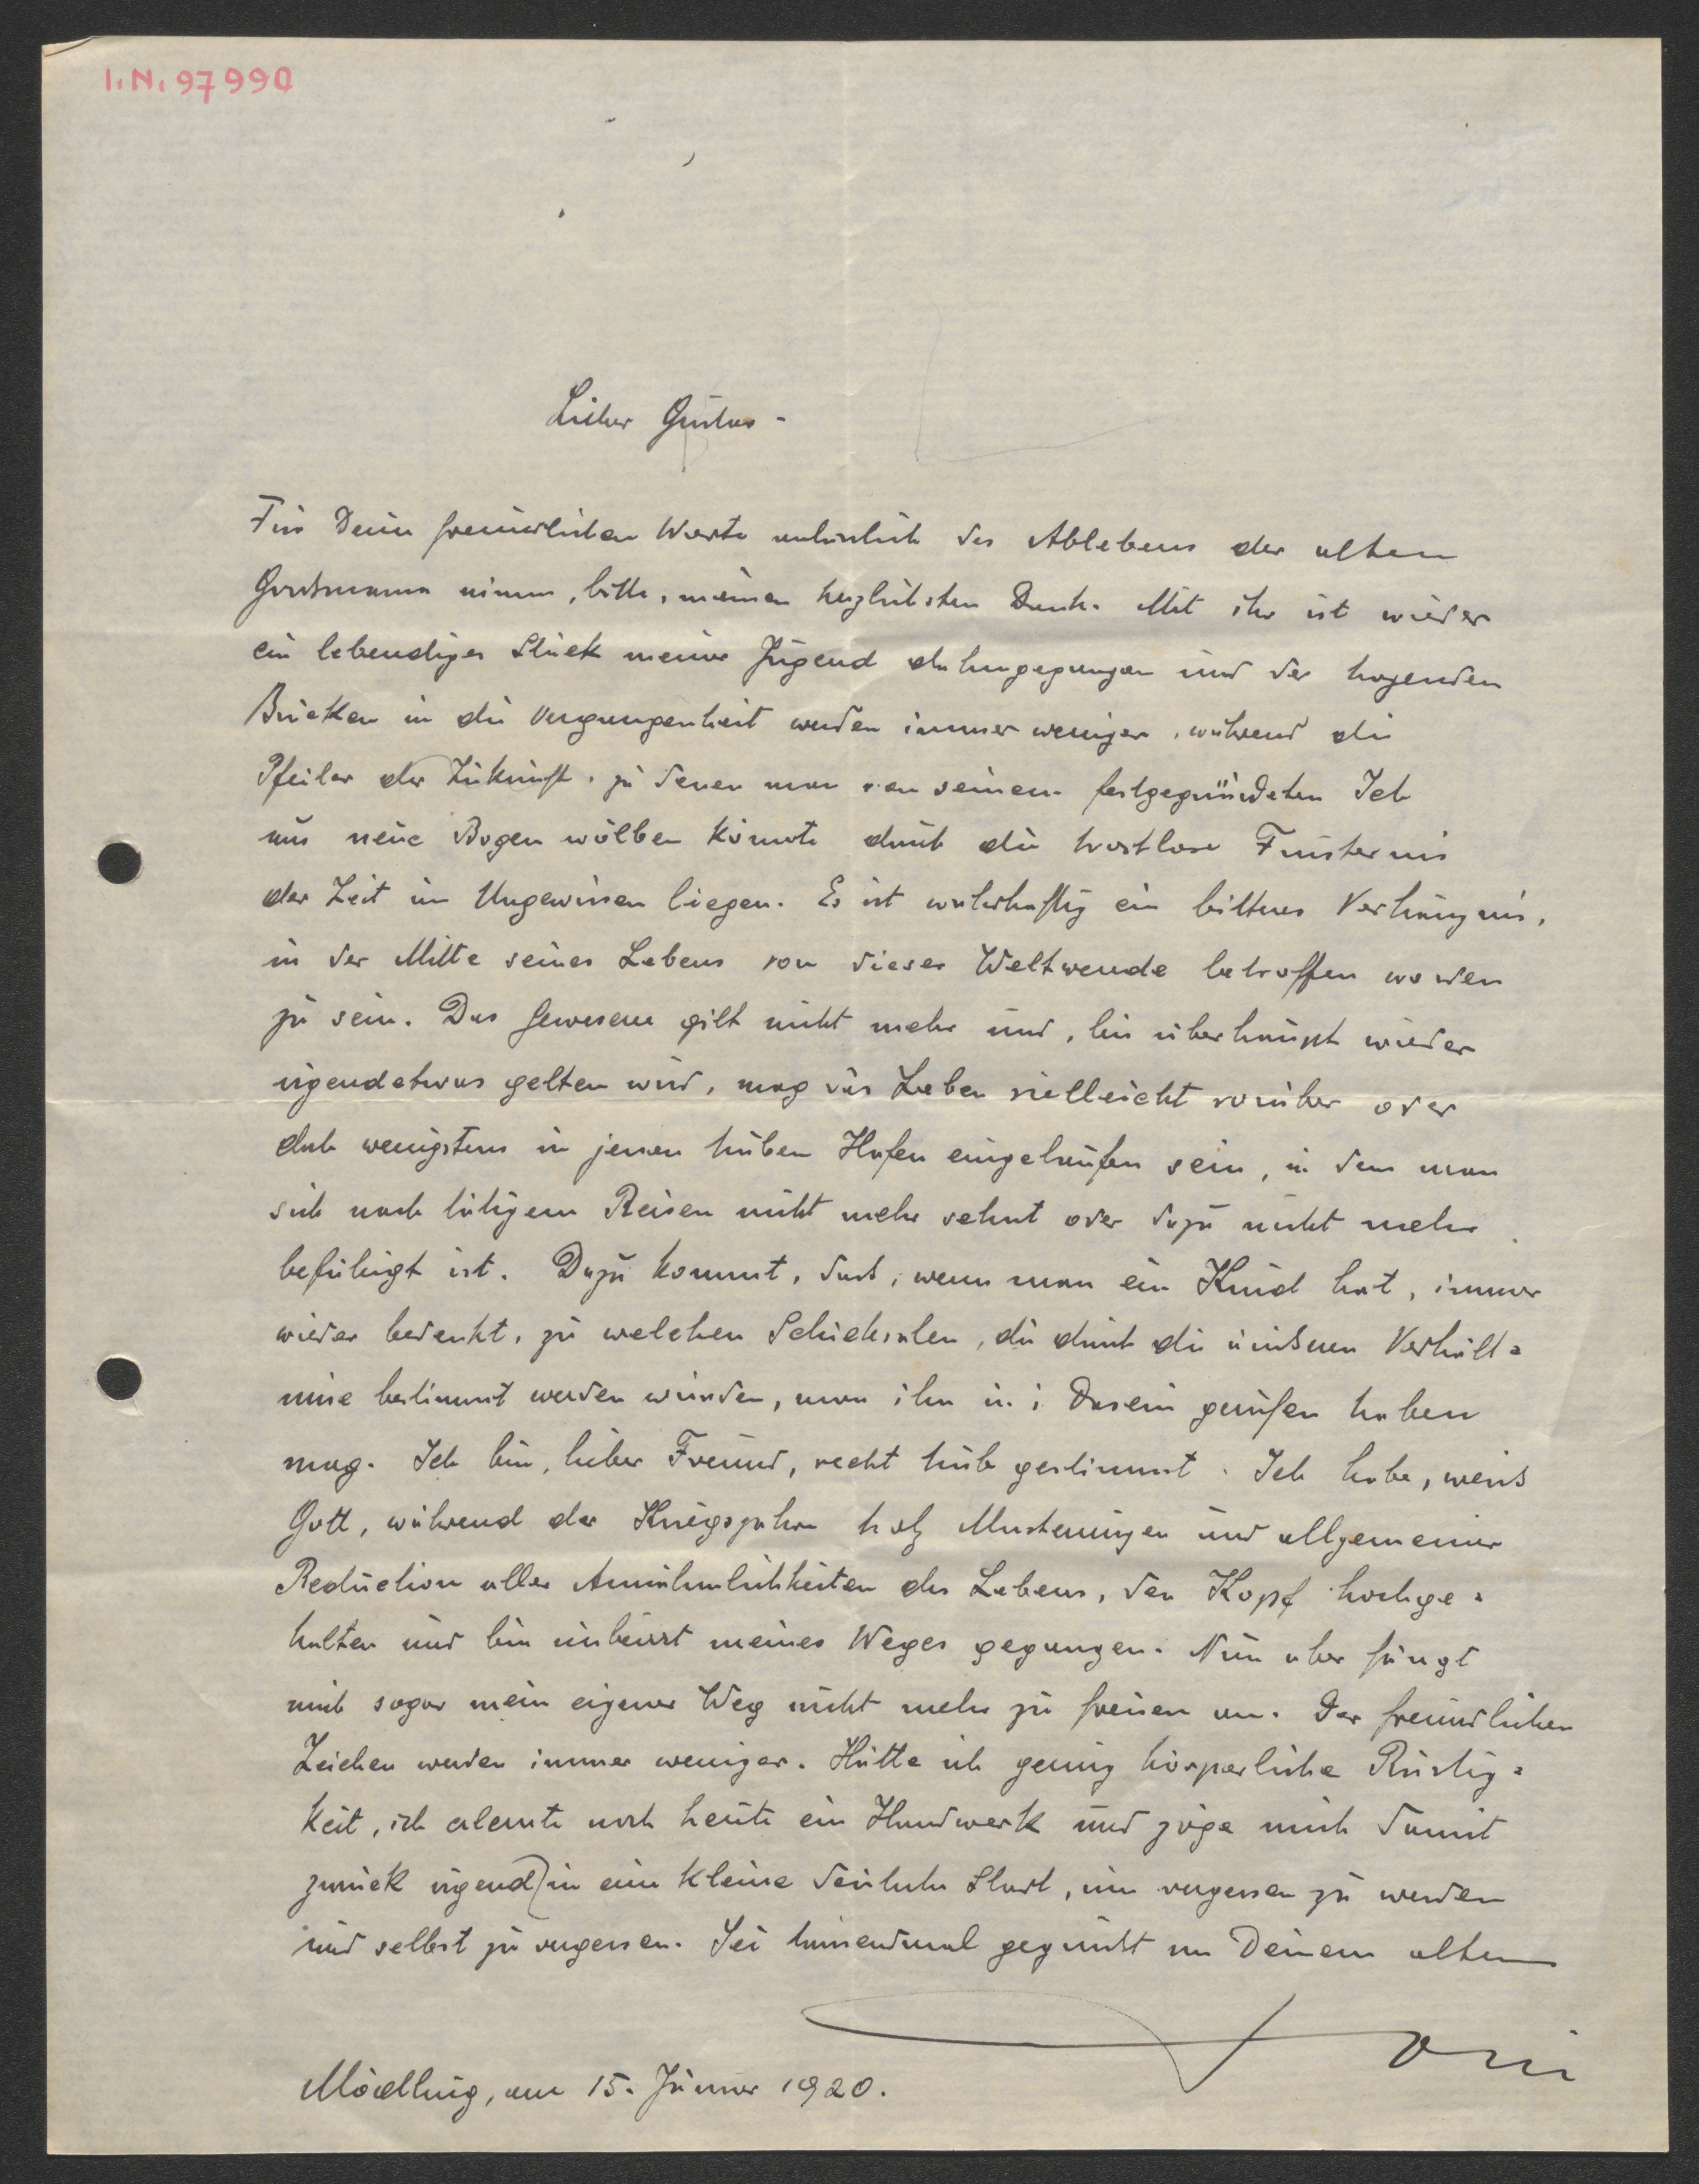 I. N. 97990
Lieber Gustav -
Für Deine freundlichen Worte anlässlich des Ablebens der alten
Grossmama nimm, bitte, meinen herzlichsten Dank. Mit ihr ist wieder
ein lebendiges Stück meiner Jugend dahingegangen und der tragenden
Brücken in die Vergangenheit werden immer weniger, während die
Pfeiler der Zukunft, zu denen man von seinem festgegründeten Ich
aus neue Bogen wölben könnte durch die trostlose Finsternis
der Zeit im Ungewissen liegen. Es ist wahrhaftig ein bitteres Verhängnis,
in der Mitte seines Lebens von dieser Weltwende betroffen worden
zu sein. Das Gewesene gilt nicht mehr und, bis überhaupt wieder
irgendetwas gelten wird, mag das Leben vielleicht vorüber oder
doch wenigstens in jenen trüben Hafen eingelaufen sein, in dem man
sich nach tätigem Reisen nicht mehr sehnt oder dazu nicht mehr
befähigt ist. Dazu kommt, dass, wenn man ein Kind hat, immer
wieder bedenkt, zu welchen Schicksalen, die durch die äusseren Verhält=
nisse bestimmt werden würden, man ihn ins Dasein gerufen haben
mag. Ich bin, lieber Freund, recht trüb gestimmt. Ich habe, weiss
Gott, während der Kriegsjahre trotz Musterungen und allgemeiner
Reduction aller Annehmlichkeiten des Lebens, den Kopf hochge=
halten und bin unbeirrt meines Weges gegangen. Nun aber fängt
mich sogar mein eigener Weg nicht mehr zu freuen an. Der freundlichen
Zeichen werden immer weniger. Hätte ich genug körperliche Rüstig=
keit, ich erlernte noch heute ein Handwerk und zöge mich damit
zurück irgend in eine kleine deutsche Stadt, um vergessen zu werden
und selbst zu vergessen. Sei tausendmal gegrüsst von Deinem alten
Toni
Mödling, am 15. Jänner 1920.